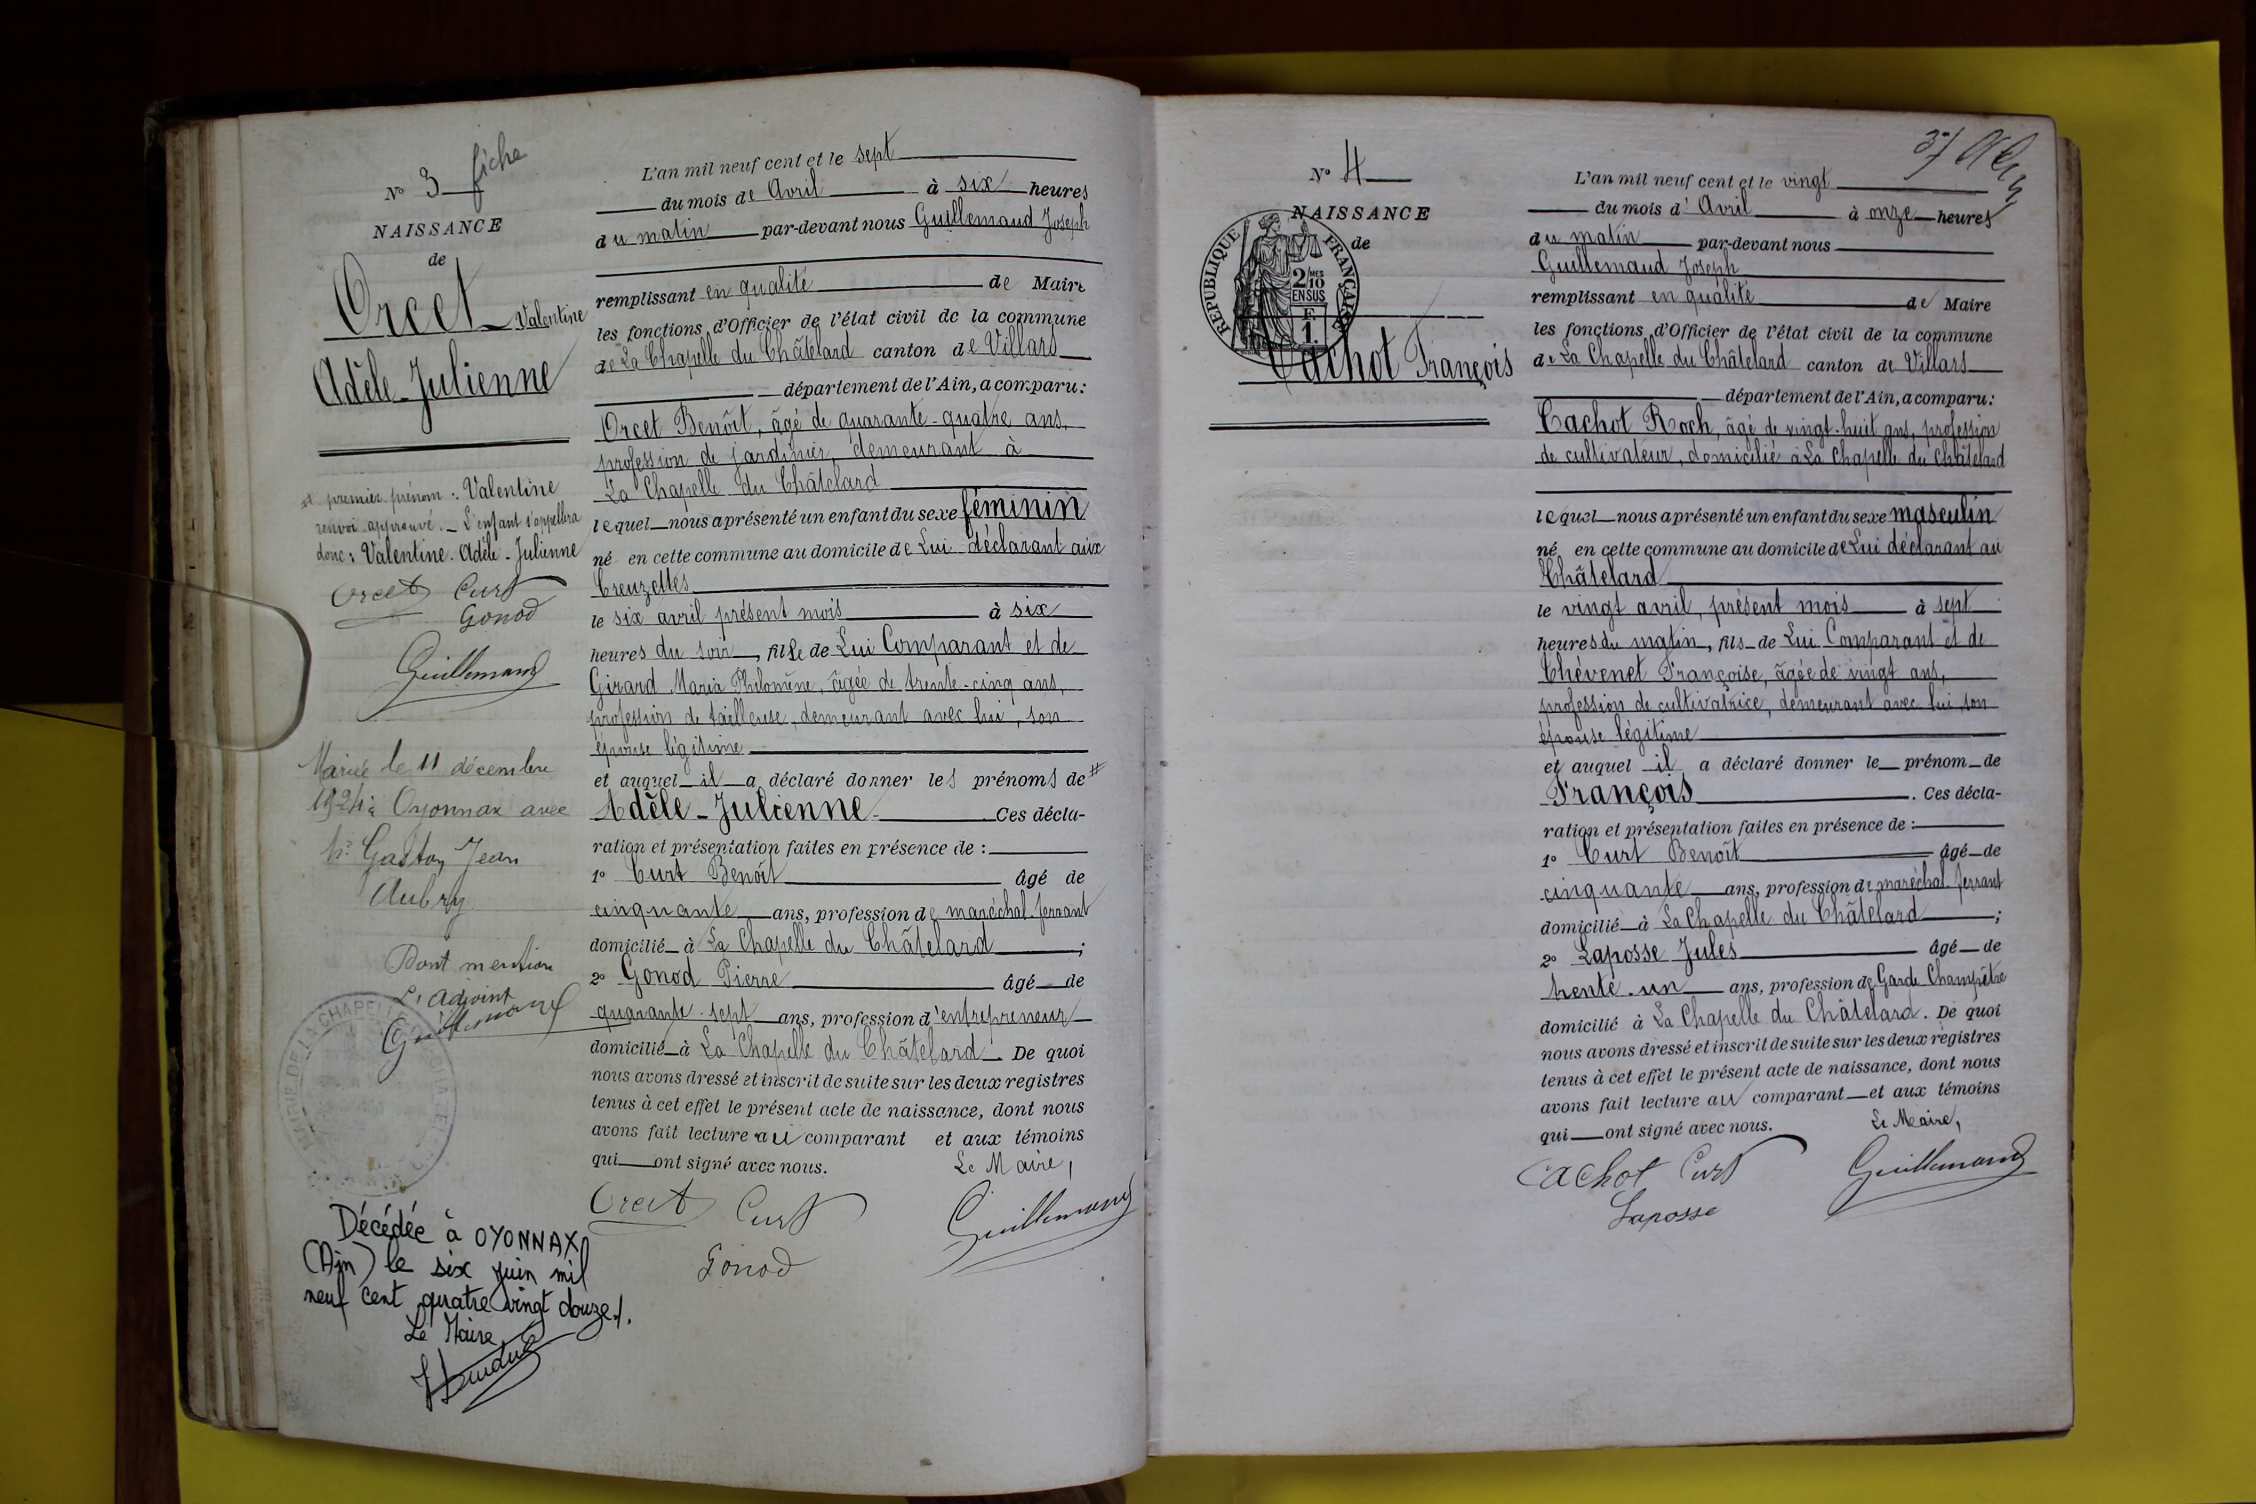 N° 3 fiche
NAISSANCE
de
Orcet Valentine
Adèle-Julienne
premier prénom : Valentine
renvoi approuvé. _ L'enfant s'appellera
donc : Valentine-Adèle-Julienne
Orcet Curt
Gonod
Guillemaud
Mariée le 11 décembre
1924 à Oyonnax avec
Gaston Jean
Aubry
Dont mention
L'adjoint
Guillemaud
MAIRIE DE LA CHAPELLE
Décédée à OYONNAX
(Ain) le six juin mil
neuf cent quatre vingt douze./.
Le Maire
L'an mil neuf cent et le sept
du mois de Avril à six heures
du matin par-devant nous Guillemaud Joseph
remplissant en qualité de Maire
les fonctions d'Officier de l'état civil de la commune
de La Chapelle du Châtelard canton de Villars
département de l'Ain, a comparu:
Orcet Benoît, âgé de quarante-quatre ans,
profession de jardinier, demeurant à
La Chapelle du Châtelard
lequel nous a présenté un enfant du sexe féminin
né en cette commune au domicile de Lui déclarant aux
Creuzettes
le six avril présent mois à six
heures du soir, fille de Lui Comparant et de
Girard Maria Philomène, âgée de trente-cinq ans,
profession de tailleuse, demeurant avec lui, son
épouse légitime
et auquel il a déclaré donner les prénoms de #
Adèle-Julienne. Ces décla-
ration et présentation faites en présence de :
1° Curt Benoît âgé de
cinquante ans, profession de maréchal-ferrant
domicilié à La Chapelle du Châtelard ;
2° Gonod Pierre âgé de
quarante-sept ans, profession d'entrepreneur
domicilié à La Chapelle du Châtelard. De quoi
nous avons dressé et inscrit de suite sur les deux registres
tenus à cet effet le présent acte de naissance, dont nous
avons fait lecture au comparant et aux témoins
qui ont signé avec nous.
Le Maire,
Orcet Curt Guillemaud
Gonod
N° 4
NAISSANCE
de
RÉPUBLIQUE FRANÇAISE
2/10 MES
EN SUS
F.
1.
Cachot François
37
L'an mil neuf cent et le vingt
du mois d'Avril à onze heures
du matin par-devant nous
Guillemaud Joseph
remplissant en qualité de Maire
les fonctions d'Officier de l'état civil de la commune
de La Chapelle du Châtelard canton de Villars
département de l'Ain, a comparu:
Cachot Roch, âgé de vingt-huit ans, profession
de cultivateur, domicilié à La Chapelle du Châtelard
lequel nous a présenté un enfant du sexe masculin
né en cette commune au domicile de Lui déclarant au
Châtelard
le vingt avril, présent mois à sept
heures du matin, fils de Lui Comparant et de
Chévenet Françoise, âgée de vingt ans,
profession de cultivatrice, demeurant avec lui, son
épouse légitime
et auquel il a déclaré donner le prénom de
François. Ces décla-
ration et présentation faites en présence de :
1° Curt Benoît âgé de
cinquante ans, profession de maréchal-ferrant
domicilié à La Chapelle du Châtelard ;
2° Laposse Jules âgé de
trente-un ans, profession de Garde Champêtre
domicilié à La Chapelle du Châtelard. De quoi
nous avons dressé et inscrit de suite sur les deux registres
tenus à cet effet le présent acte de naissance, dont nous
avons fait lecture au comparant et aux témoins
qui ont signé avec nous.
Le Maire,
Cachot Curt Guillemaud
Laposse